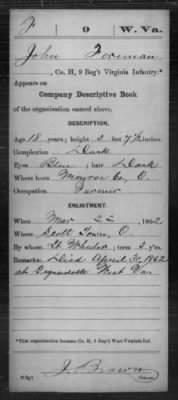 F 9 W. Va.
John Forman
, Co. H, 9 Reg't Virginia Infantry.*
Appears on
Company Descriptive Book
of the organization named above.
DESCRIPTION.
Age 18 years; height 5 feet 7½ inches.
Complexion Dark
Eyes Blue; hair Dark
Where born Monroe Co, O.
Occupation Farmer
ENLISTMENT.
When Mar 22, 1862
Where Scott Town, O.
By whom Lt Wheeler; term 3 y'rs.
Remarks: Died April 30, 1862
at Guyandotte West Va.
*This organization became Co. H, 9 Reg't West Virginia Inf.
J. Brown
Copyist.